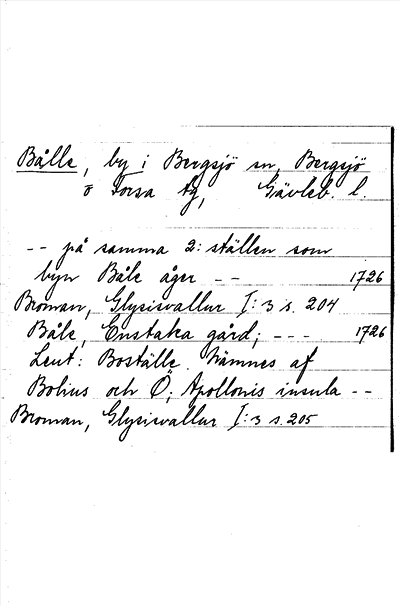 Bålle, by i Bergsjö sn, Bergsjö
o Forsa tg, Gävleb. l.
-- på samma 2: ställen som
byn Båle åger -- 1726
Broman, Glysisvallur I: 3 s. 204
Båle, Enstaka gård; --- 1726
Leut: Boställe. Nämnes af
Bolius och Ö; Apollonis insula --
Broman, Glysisvallur I: 3 s. 205